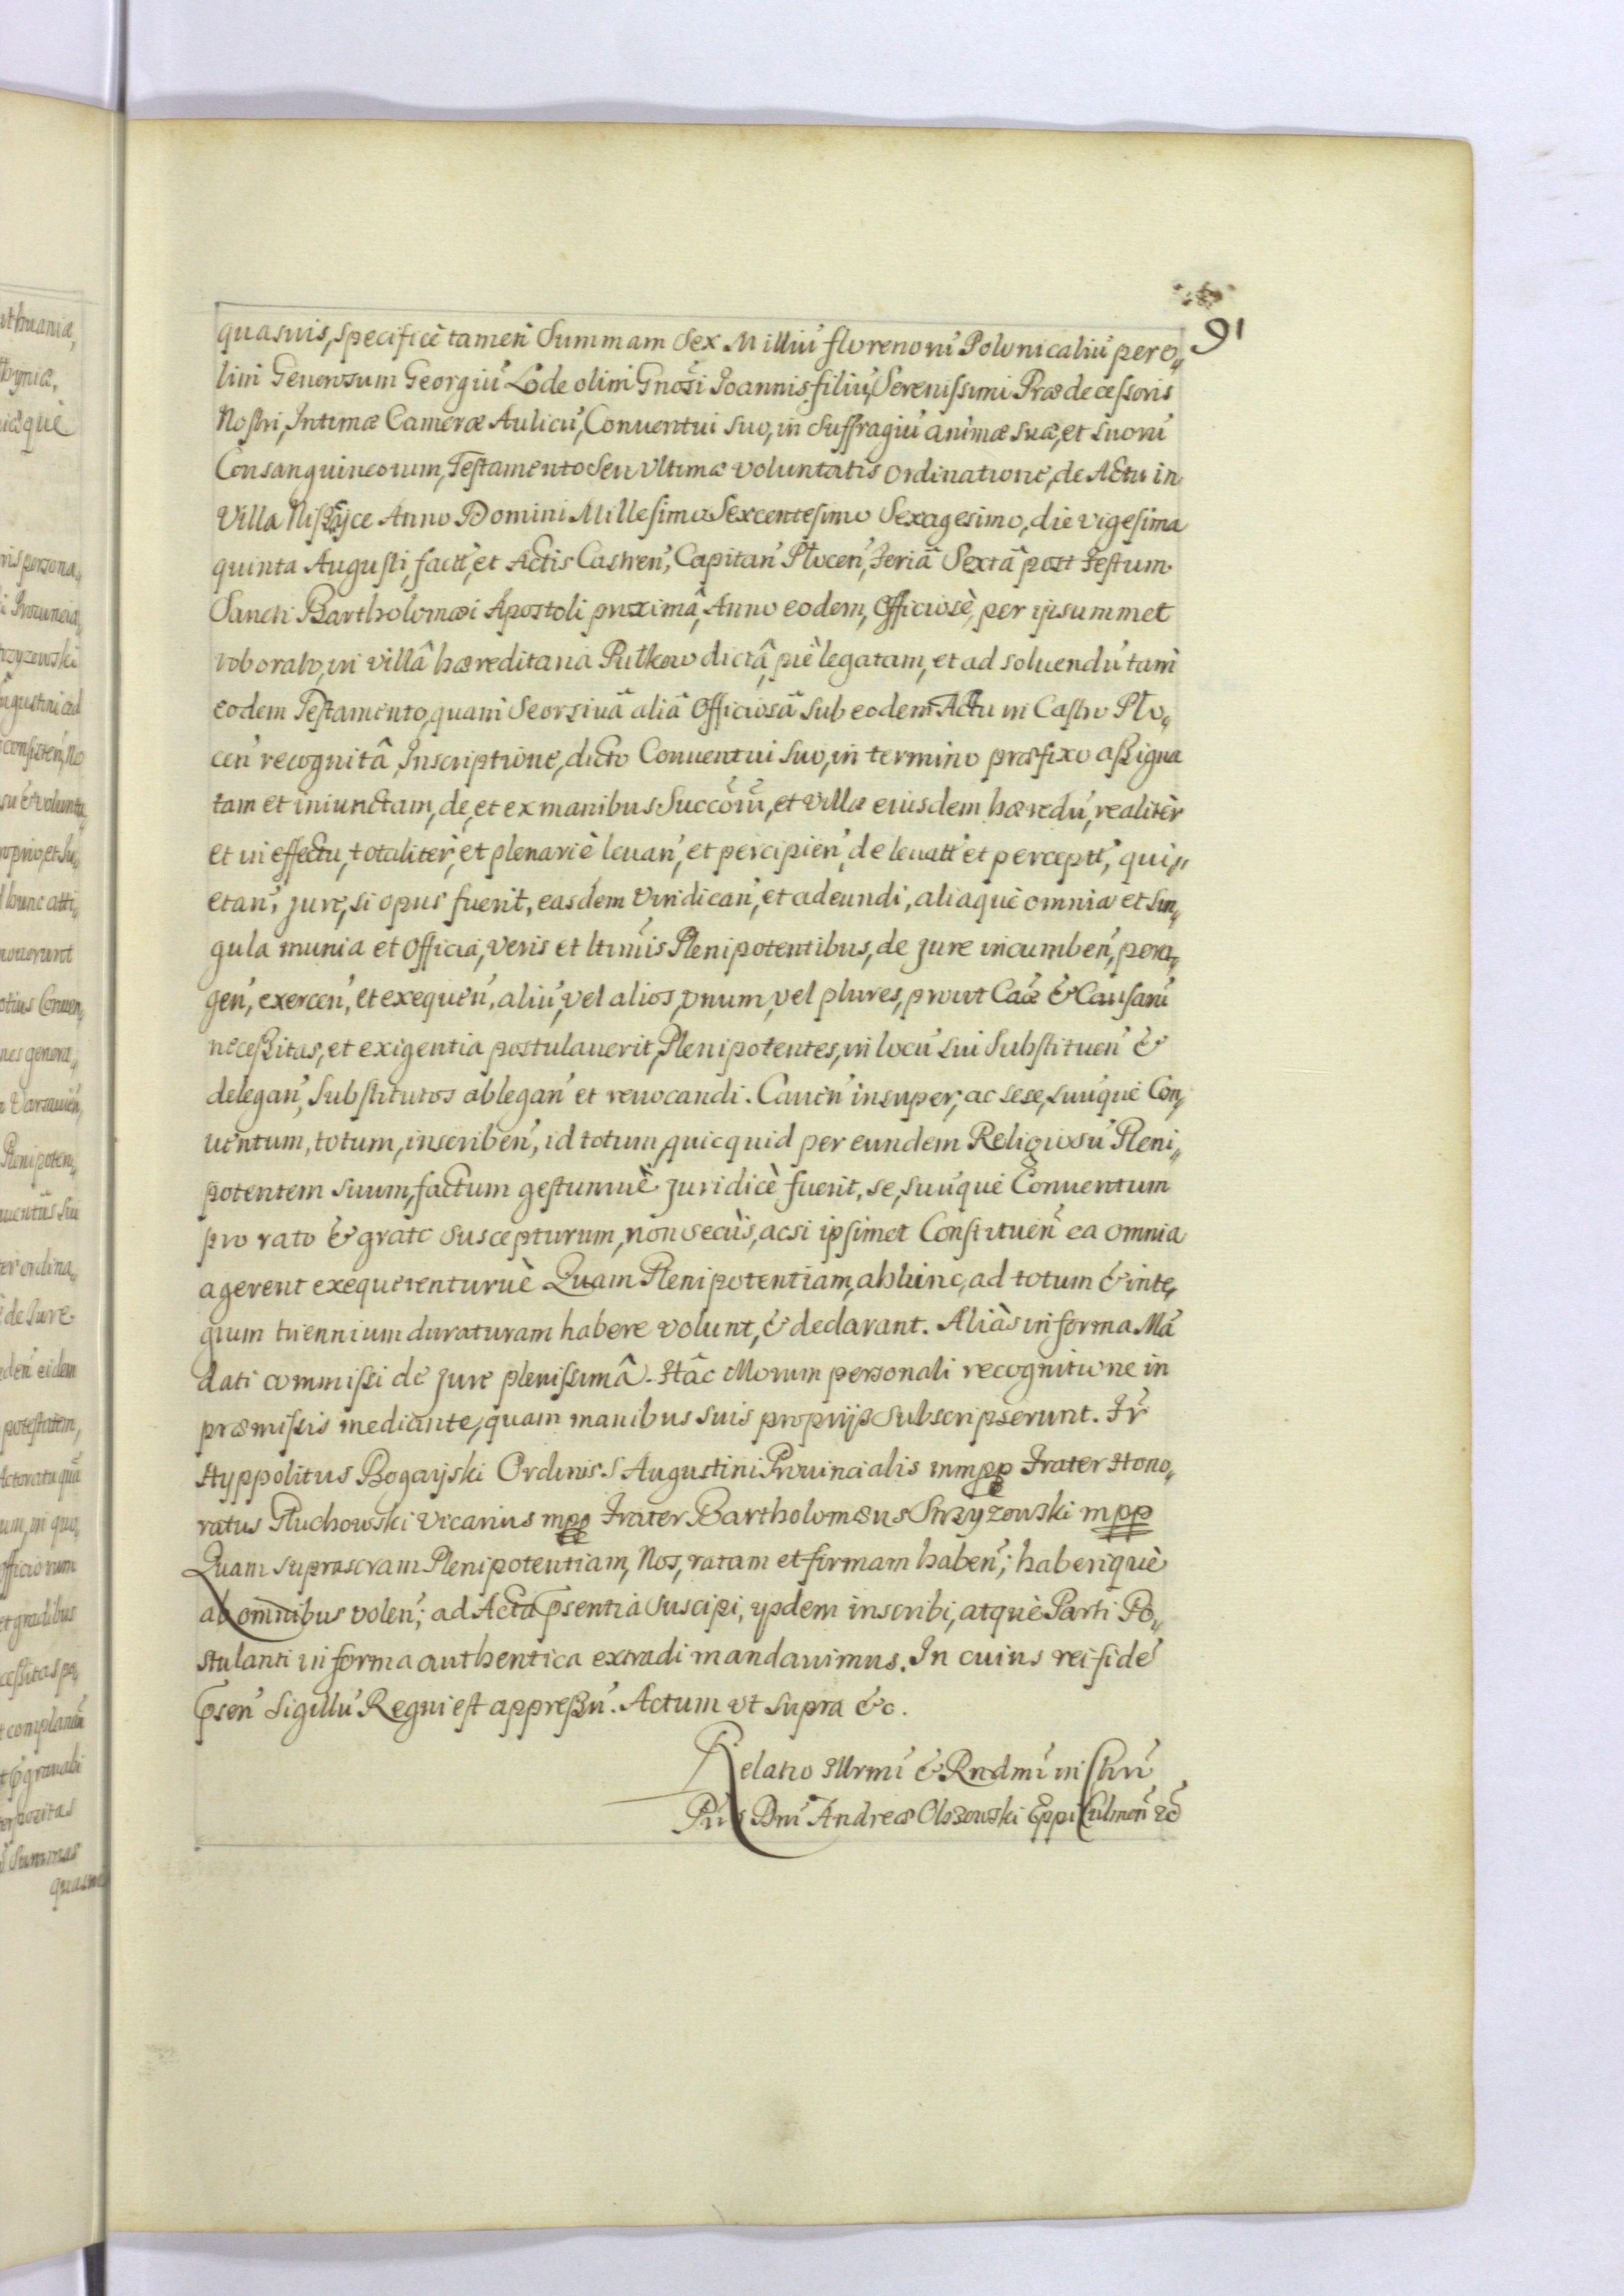 91
quasuis, specificè tamen Summam Sex Milliú florenorú Polonicaliú per o„
lim Generosum Georgiú Lode olim Gnosi Joannis filiú, Serenissimi Prædecessoris
Nostri, Intimæ Cameræ Aulicú, Conuentui suo, in suffragiú animæ suæ, et suorú
Consanguineorum, Testamento seu vltimæ voluntatis ordinatione, de Actu in
Villa Anno Domini Millesimo Sexcentesimo Sexagesimo, die vigesima
quinta Augusti, fact, et Actis Castren, Capitan Plocen, Feriâ Sextâ post Festum
Sancti Bartholomæi Apostoli proximâ, Anno eodem, Officiosè, per ipsummet
roborato, in villâ hæreditaria Pułkow dictâ, piè legatam, et ad soluendú tam
eodem Testamento, quam Seorsiuâ aliâ Officiosâ sub eodem Actu in Castro Plo„
cen recognitâ, Inscriptione, dicto Conuentui suo, in termino præfixo assigna
tam et iniunctam, de, et ex manibus Succorú, et villæ eiusdem hæredú, realitèr
et in effectu, totalitèr, et plenariè leuan, et percipien, de leuatt et perceptt, qui„
etan, jure, si opus fuerit, easdem vindican, et adeundi, aliaquè omnia et sin„
gula munia et officia, veris et ltimis Plenipotentibus, de jure incumben, pera„
gen, exercen, et exequen, aliú, vel alios, vnum, vel plures, prout Caæ & Causarú
necessitas, et exigentia postulauerit, Plenipotentes, in locú sui Substituen &
delegan, Substitutos ablegan et reuocandi. Cauen insuper, ac sese, suúque Con„
uentum, totum, inscriben, id totum, quicquid per eundem Religiosú Pleni„
potentem suum, factum gestumuè juridicè fuerit, se, suúque Conuentum
pro rato & grato suscepturum, non secùs, acsi ipsimet Constituen ea omnia
agerent exequerenturuè. Quam Plenipotentiam, abhinc, ad totum & inte„
grum triennium duraturam habere volunt, & declarant. Aliàs in forma Má
dati commissi de jure plenissimâ. Hâc Illorum personali recognitione in
præmissis mediante, quam manibus suis proprijs subscripserunt. Fr
Hyppolitus Bogayski Ordinis S Augustini Prouincialis mmpp Frater Hono„
ratus Głuchowski Vicarius mpp Frater Bartholomæus Strzyżowski mpp
Quam suprascram Plenipotentiam, Nos, ratam et firmam haben; haberiquè
ab omnibus volen; ad Acta psentia suscipi, ysdem inscribi, atquè Parti Po„
stulanti in forma authentica extradi mandauimus. In cuius rei fidé
psen Sigillú Regni est appressú. Actum vt supra &c.
Relatio Illrmi & Rndmi in Chri
Pris Dni Andreæ Olszowski Eppi Culmen &c